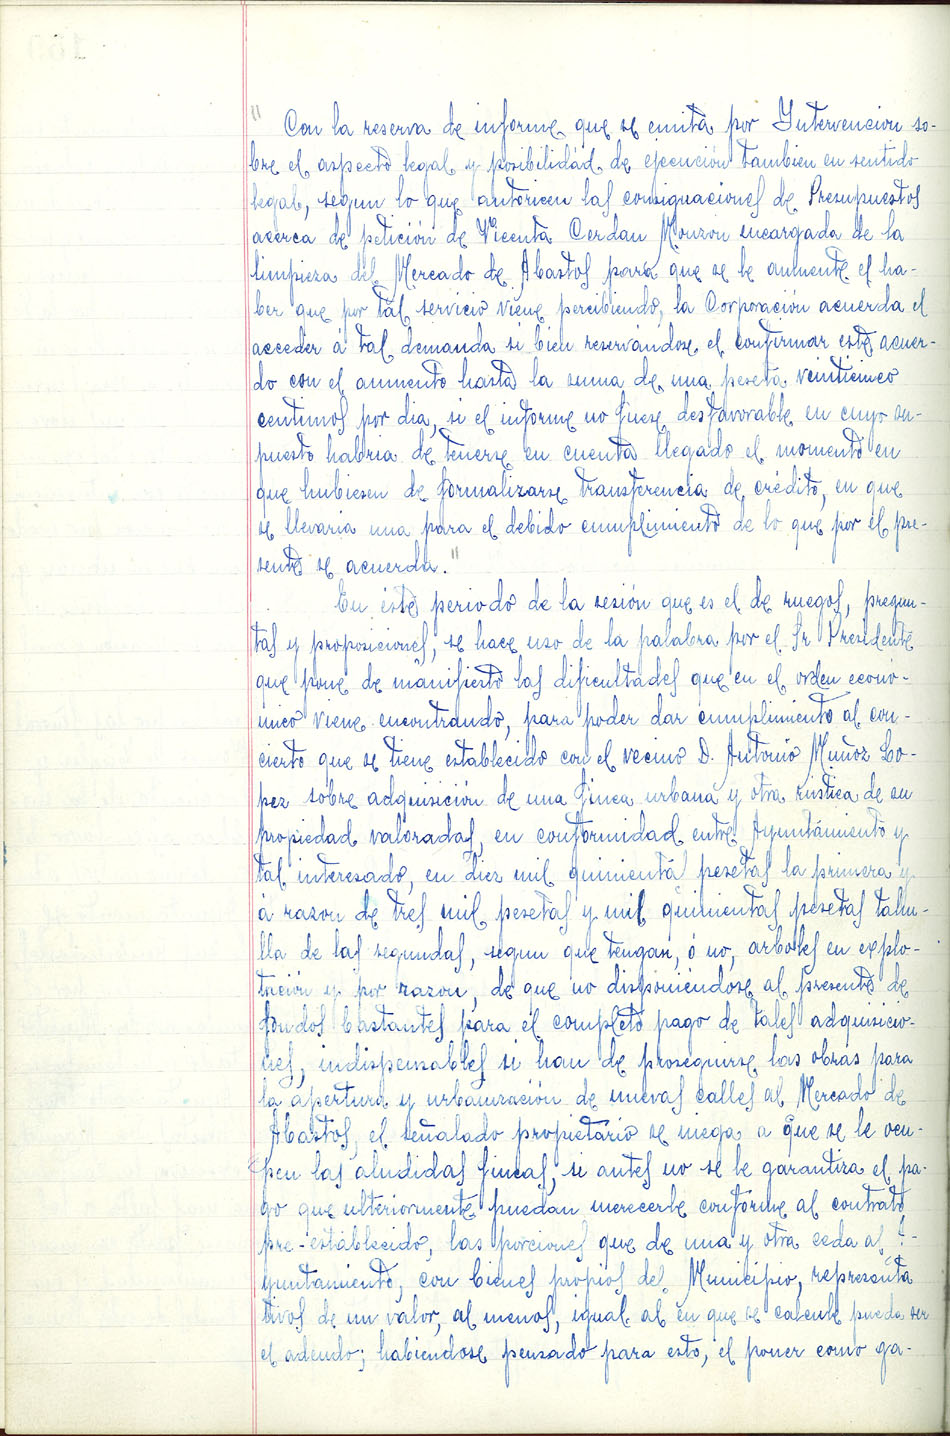 " Con la reserva de informe que se emita por Intervencion so-
bre el aspecto legal y posibilidad de ejecución tambien en sentido
legal, segun lo que autoricen las consignaciones de Presupuestos
acerca de petición de Vicenta Cerdan Monzon encargada de la
limpieza del Mercado de Abastos para que se le aumente el ha-
ber que por tal servicio viene percibiendo, la Corporación acuerda el
acceder á tal demanda si bien reservándose el confirmar este acuer-
do con el aumento hasta la suma de una peseta veinticinco
centimos por dia, si el informe no fuese desfavorable en cuyo su-
puesto habria de tenerse en cuenta llegado el momento en
que hubiesen de formalizarse transferencia de crédito, en que
se llevaria una para el debido cumplimiento de lo que por el pre-
sente se acuerda."
En éste periodo de la sesión que es el de ruegos, pregun-
tas y proposiciones, se hace uso de la palabra por el Sr Presidente
que pone de manifiesto las dificultades que en el orden econo-
mico viene encontrando, para poder dar cumplimiento al con-
cierto que se tiene establecido con el vecino D. Antonio Muñoz Lo-
pez sobre adquisición de una finca urbana y otra rústica de su
propiedad valoradas, en conformidad entre Ayuntamiento y
tal interesado, en diez mil quinientas pesetas la primera y
á razon de tres mil pesetas y mil quinientas pesetas tahu-
lla de las segundas, segun que tengan, ó no, arboles en explo-
tación y por razon, de que no disponiéndose al presente de
fondos bastantes para el completo pago de tales adquisicio-
nes, indispensables si han de proseguirse las obras para
la apertura y urbanización de nuevas calles al Mercado de
Abastos, el señalado propietario se niega a que se le ocu-
pen las aludidas fincas, si antes no se le garantiza el pa-
go que ulteriormente puedan merecerle conforme al contrato
pre-establecido, las porciones que de una y otra ceda al A-
yuntamiento, con bienes propios del Municipio, representa
tivos de un valor, al menos, igual al en que se calcule pueda ser
el adeudo; habiendose pensado para esto, el poner como ga-